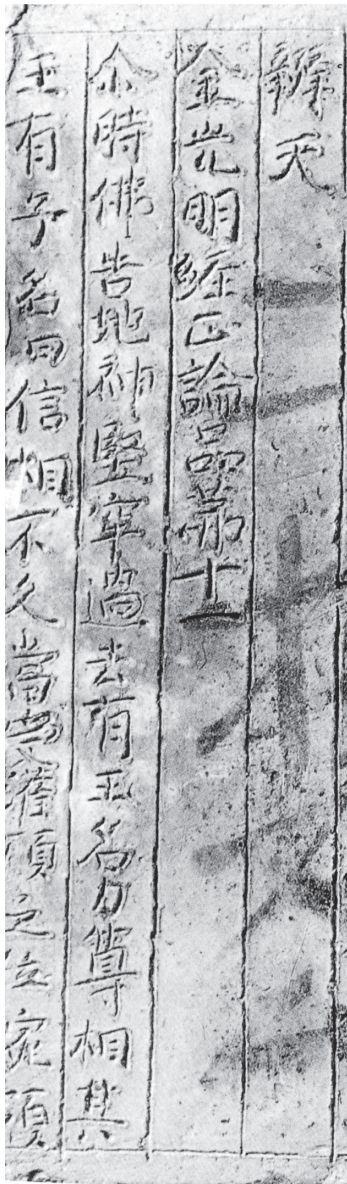 辨天
金光明經正論品苐十一
尒時佛告地神堅牢過去有王名力尊相其
王有子名曰信相不久當受灌頂之位